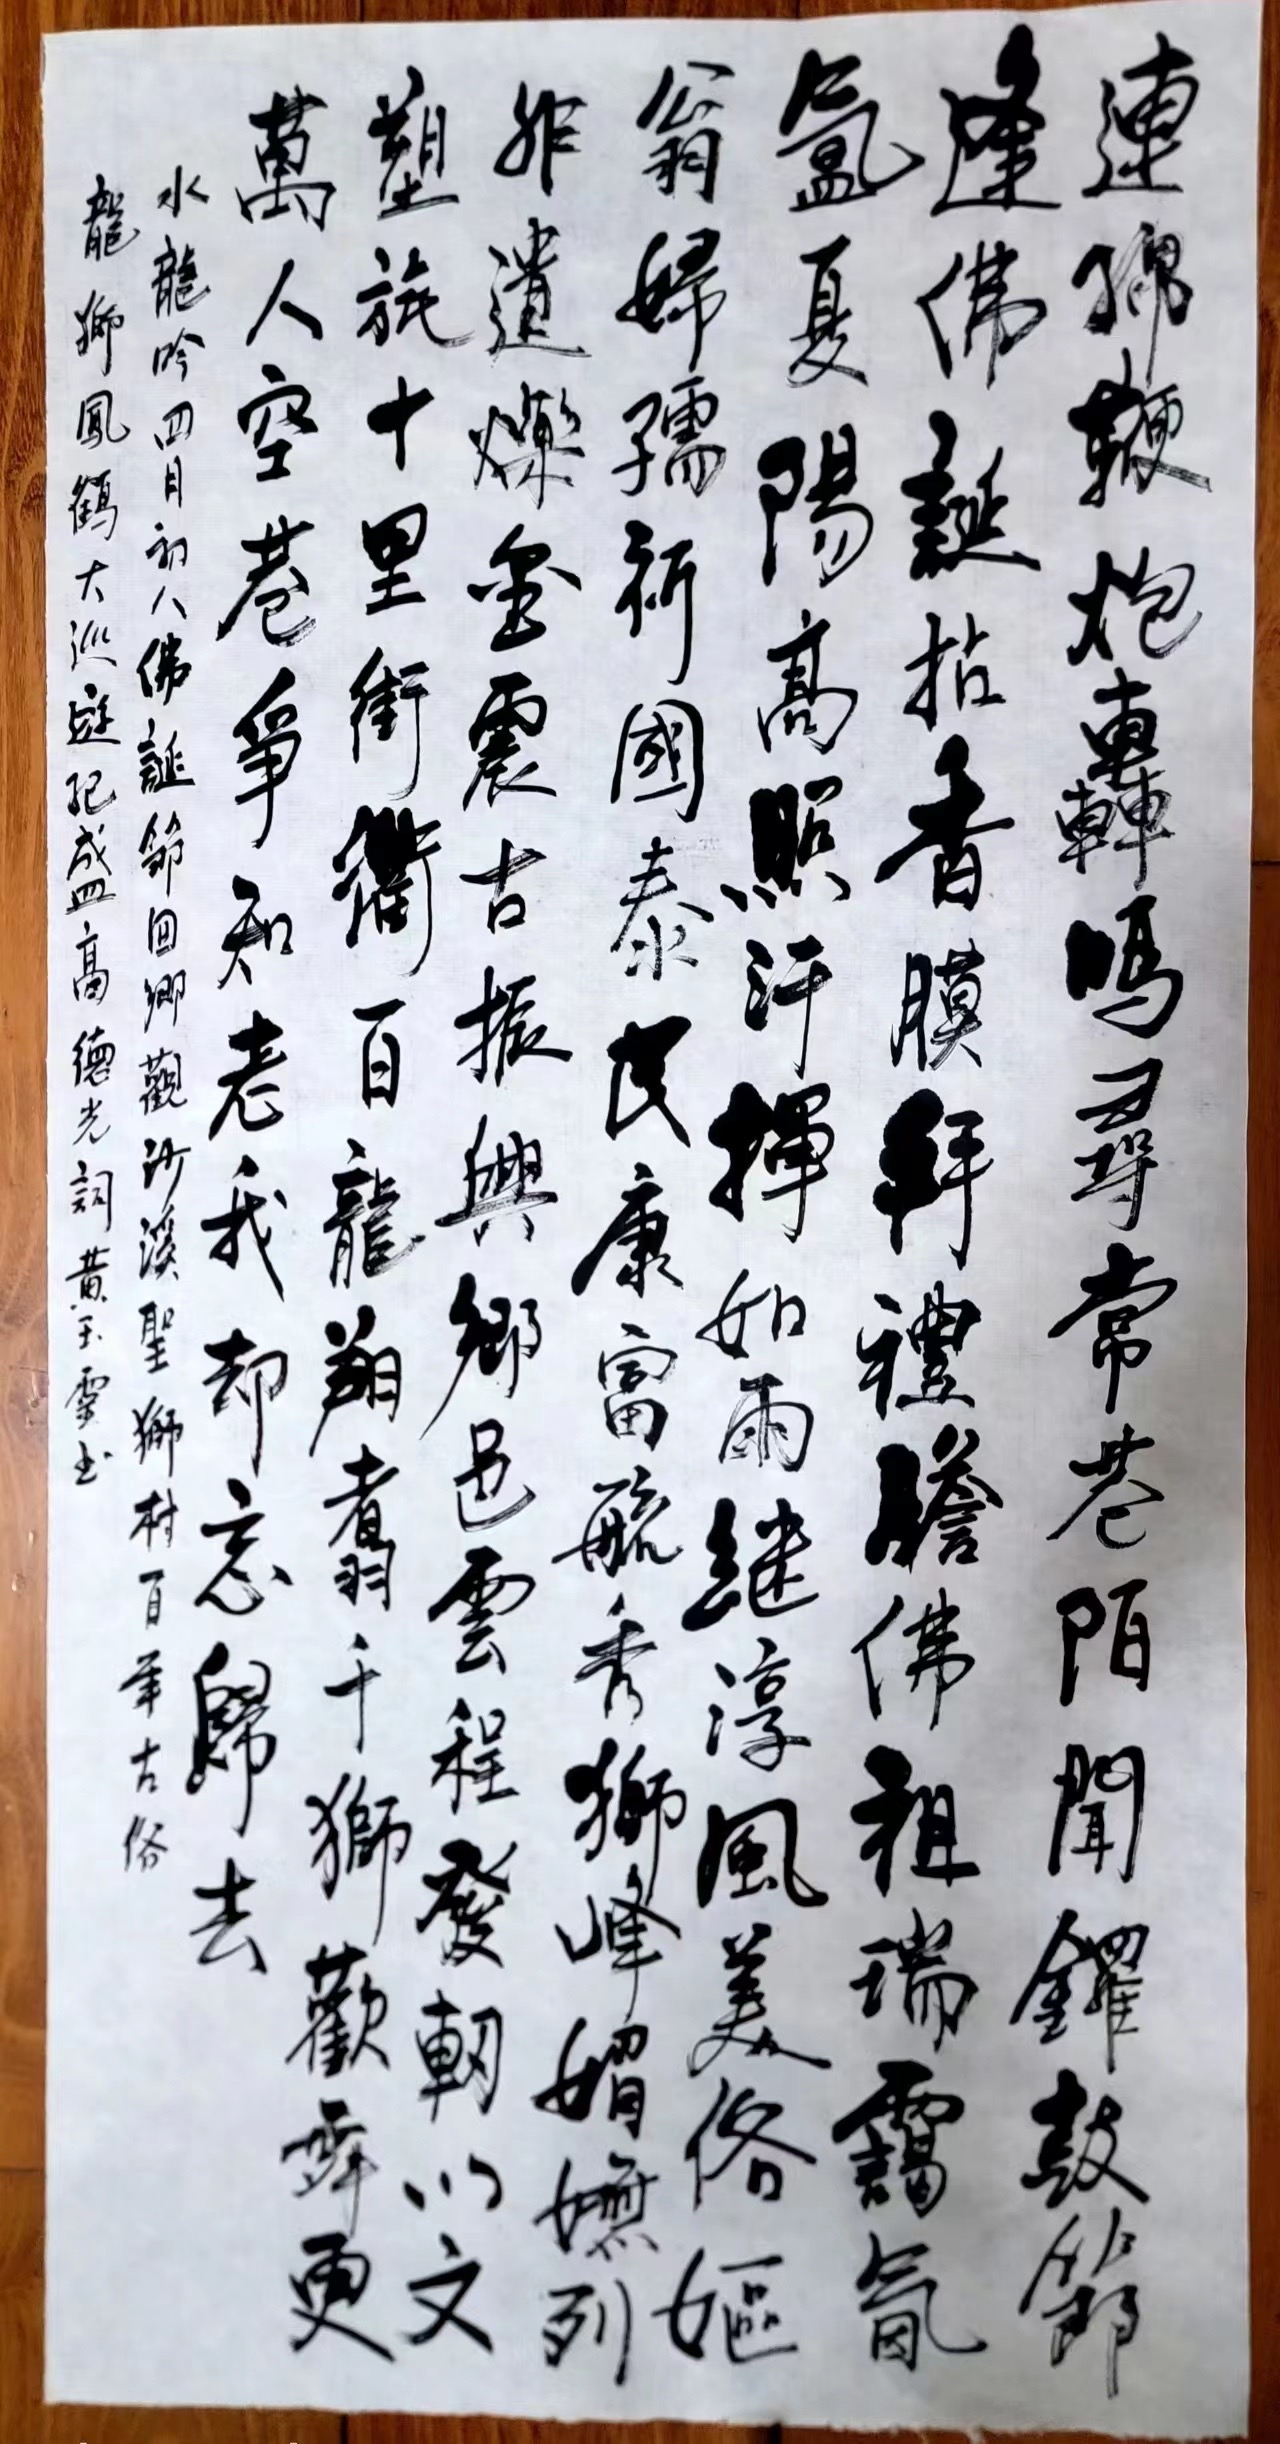 連綿鞭炮轟鳴尋常巷陌聞鑼鼓節
逢佛誕拈香膜拜禮瞻佛祖瑞靄氤
氳夏陽高照汗揮如雨继淳風美俗嫗
翁婦孺祈國泰民康富毓秀獅峰媚嫵列
非遺爍金震古振興鄉邑雲程發軔以文
塑旅十里街衢百龍翔翥千獅歡舞更
萬人空巷爭知老我却忘歸去
水龍吟四月初八佛誕節回鄉觀沙溪聖獅村百年古俗
龍獅鳳鶴大巡遊记盛高德光詞黃玉雲书